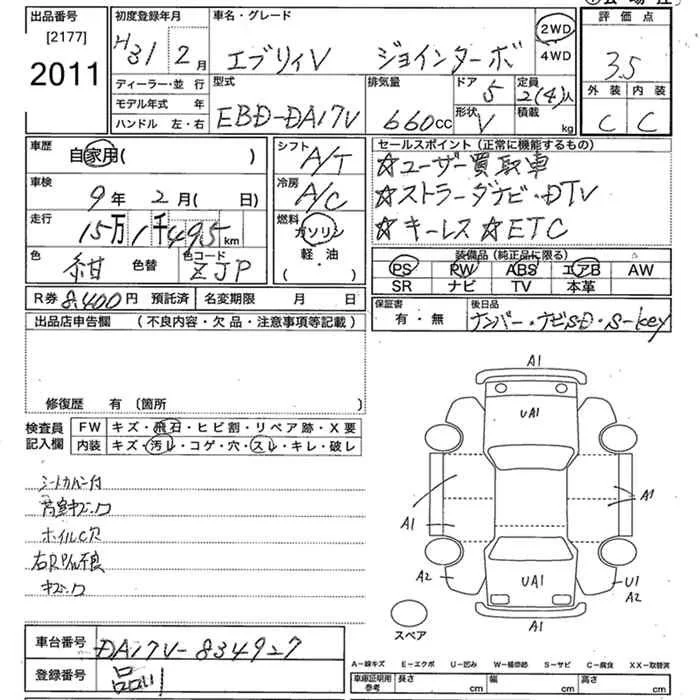 出品番号
[2177]
2011
初度登録年月
H31 2月
車名・グレード
エブリィV ジョインターボ
2WD
4WD
評価点
3.5
外装 内装
C C
ディーラー・並行
モデル年式 年
ハンドル 左・右
型式
EBD-DA17V
排気量
660cc
ドア
5
形状
V
定員
2(4)人
積載
kg
車歴
自家用( )
車検
9年 2月( 日)
走行
15万1千495km
色
紺 色替
色コード
ZJP
シフト
A/T
冷房
A/C
燃料
ガソリン
・
軽油
( )
セールスポイント(正常に機能するもの)
☆ユーザー買取車
☆ストラーダナビ・DTV
☆キーレス ☆ETC
装備品(純正品に限る)
PS PW ABS エアB AW
SR ナビ TV 本革
R券 8,400円 預託済 名変期限 月 日
保証書
有・無
後日品
ナンバー・ナビSD・S-key
出品店申告欄 (不良内容・欠品・注意事項等記載)
修復歴 有 (箇所 )
検査員
記入欄
FW キズ・飛石・ヒビ割・リペア跡・X要
内装 キズ・汚レ・コゲ・穴・スレ・キレ・破レ
シートカバー付
ホイルC穴
A1
UA1
A1
A1
A2
UA1
U1
A2
A1
スペア
車台番号
DA17V-834927
登録番号
品川
A-線キズ E-エクボ U-凹み W-補修跡 S-サビ C-腐食 XX-取替済
車庫証明用
参考
長さ cm 幅 cm 高さ cm